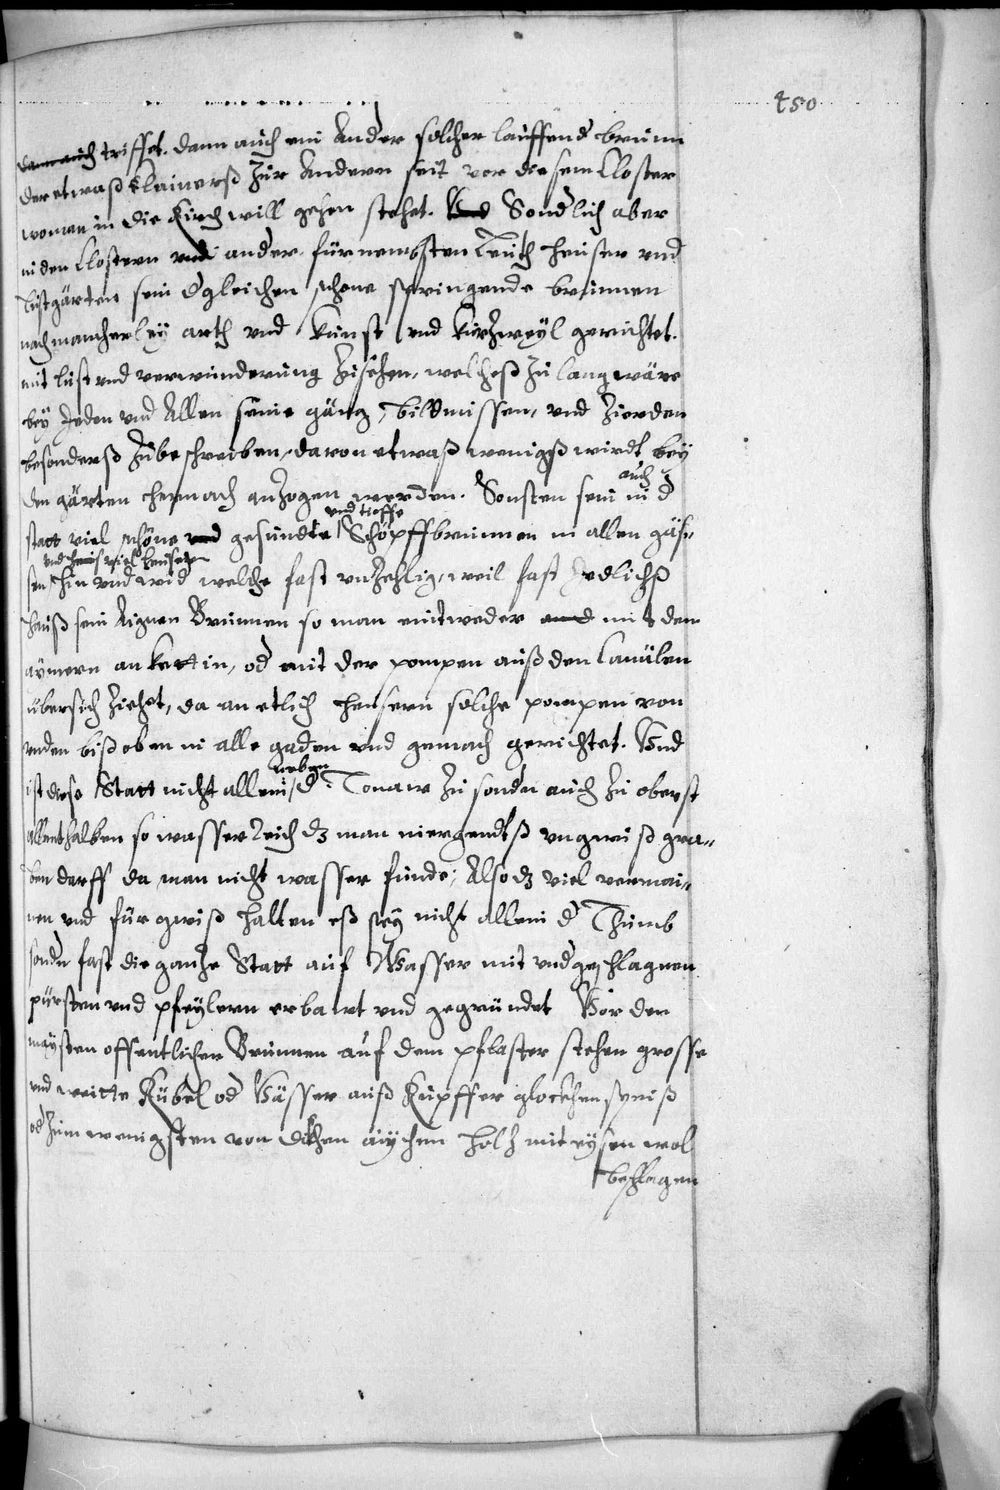 450
dann auch triffet. dann auch ein Ander solcher lauffend brunn
der etwaß klainerß zur Andern seit vor diesem Closter
wo man in die Kirch will gehen stehet. Vnd Sondlich aber
in den Clostern vnd ander fürnembsten Leuth heuser vnd
Lustgärten sein dgleichen schöne springende brunnen
nach mancherleÿ arth vnd kunst vnd kurzweÿl gerichtet.
mit lust vnd verwunderung zu sehen, welcheß zu lang wäre
beÿ Jeden vnd Allen seine gäng, bildnissen, vnd Zierden
besonderß zu beschreiben, davon etwaß wenigß wirdt beÿ
den gärten hernach anzogen werden. Sonsten sein auch in d
statt viel schöne vnd gesundte vnd tieffe Schöpffbrunnen in allen gäs-
sen vnd viel heuser hin vnd wid welche fast vnzehlig, weil fast Jedlichß
hauß sein Aignen Brunnen so man entweder mit den
aÿmern an kettin, od mit der pompen auß den Canälen
über sich ziehet, da an etlich heusern solche pompen von
vnden biß oben in alle gaden vnd gemach gerichtet. Vnd
ist diese Statt nicht allein neben d Tonaw zu sondn auch zu oberst
allenthalben so wasser reich dz man niergendtß vngewiß gra-
ben darff da man nicht wasser finde; Also dz viel vermai-
nen vnd für gwiß halten eß seÿ nicht allein d Thumb
sondn fast die ganze Statt auf Wasser mit vndgeschlagnen
pürsten vnd pfeÿlern erbawt vnd gegründet Vor den
maÿsten offentlichen Brunnen auf dem pflaster stehen grosse
vnd weitte Kübel od Vässer auß Kupffer glockhenspeiß
od zum wenigsten von dikhen aÿchen holz mit eÿsen wol
beschlagen